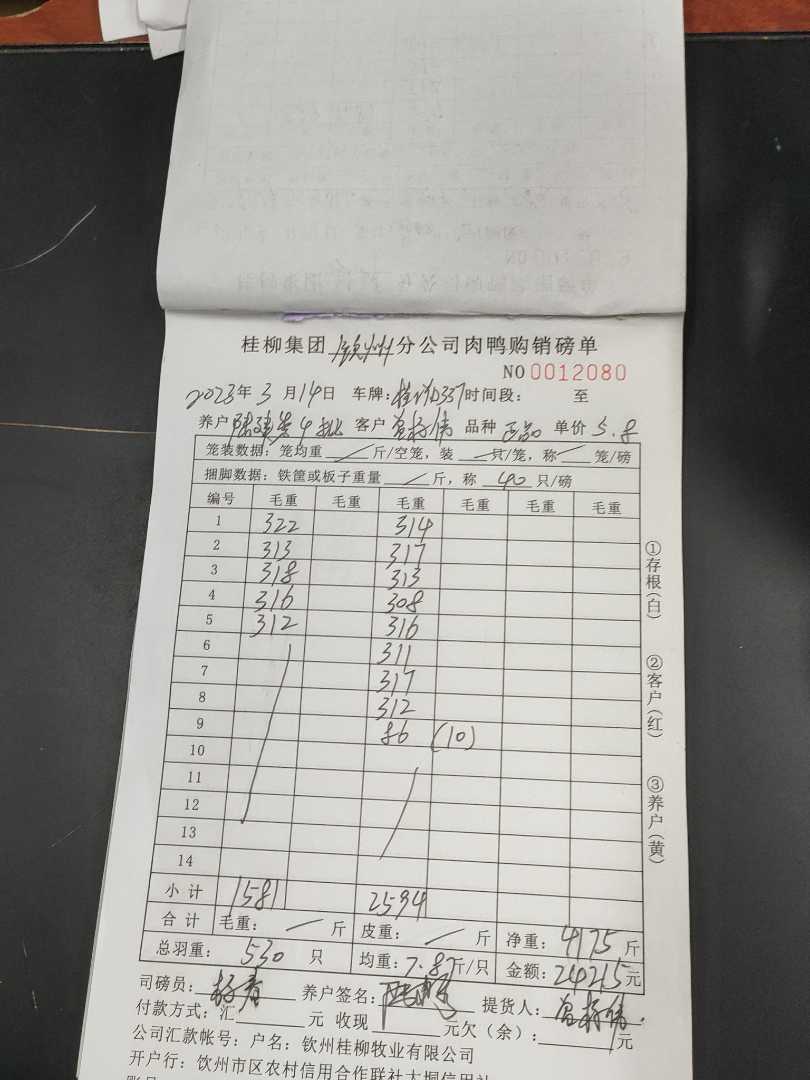 桂柳集团 钦州 分公司肉鸭购销磅单
NO 0012080
2023年 3 月 14日 车牌: 时间段: 至
养户 4批 客户 曾 伟 品种 单价 5.8
笼装数据: 笼均重 斤/空笼, 装 只/笼, 称 笼/磅
捆脚数据: 铁筐或板子重量 斤, 称 40 只/磅
编号 毛重 毛重 毛重 毛重 毛重 毛重
1 322 314
2 313 317
3 318 313
4 316 308
5 312 316
6 311
7 317
8 312
9 86 (10)
10
11
12
13
14
小计 1581 2594
合计 毛重: 斤 皮重: 斤 净重: 4175 斤
总羽重: 530 只 均重: 7.87 斤/只 金额: 24215 元
司磅员: 杨青 养户签名: 提货人: 曾 伟
付款方式: 汇 元 收现 元欠(余): 元
公司汇款帐号: 户名: 钦州桂柳牧业有限公司
开户行: 钦州市区农村信用合作联社大垌信用社
①存根(白)
②客户(红)
③养户(黄)